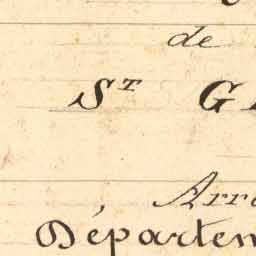 de
St G
Arr
Départem